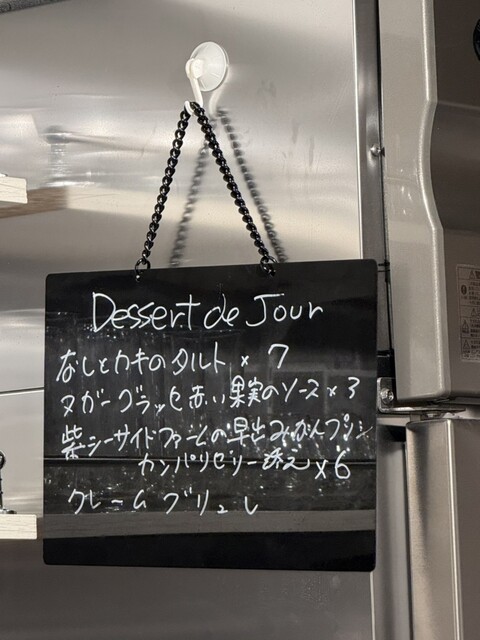 Dessert de Jour
なしとカキのタルト × 7
ヌガーグラッセ 赤い果実のソース × 3
柴シーサイドファームの早出みかんプリン
カンパリゼリー添え × 6
クレームブリュレ